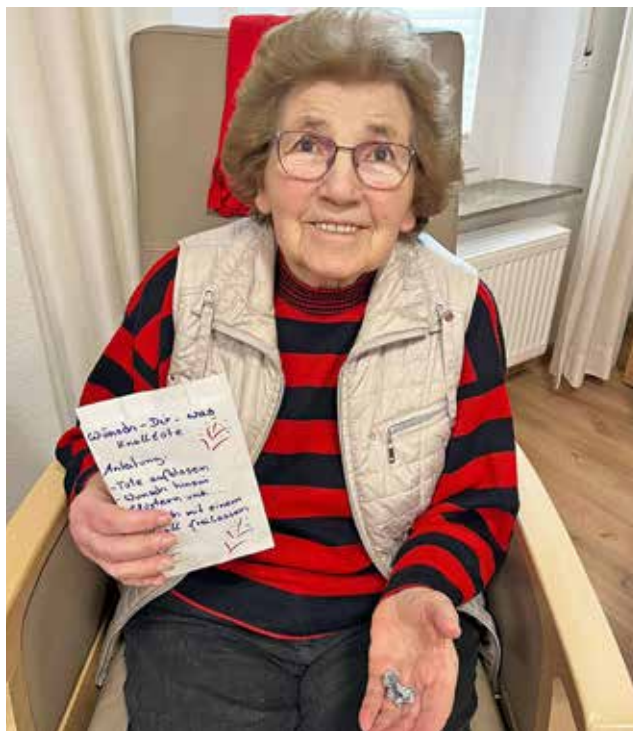 Wünsch-Dir-was
Knalltüte
Anleitung:
-Tüte aufblasen
-Wunsch hinein
flüstern und
mit einem
freilassen